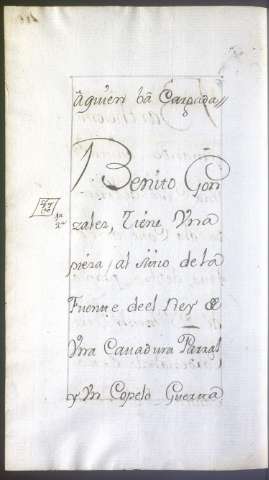 âquien bâ Cargada//
Benito Gon
zales, Tiene Vna
pieza, al sitio de la
Fuente de el Rey de
Vna Cauadura Parral
y Vn Copelo Guerra